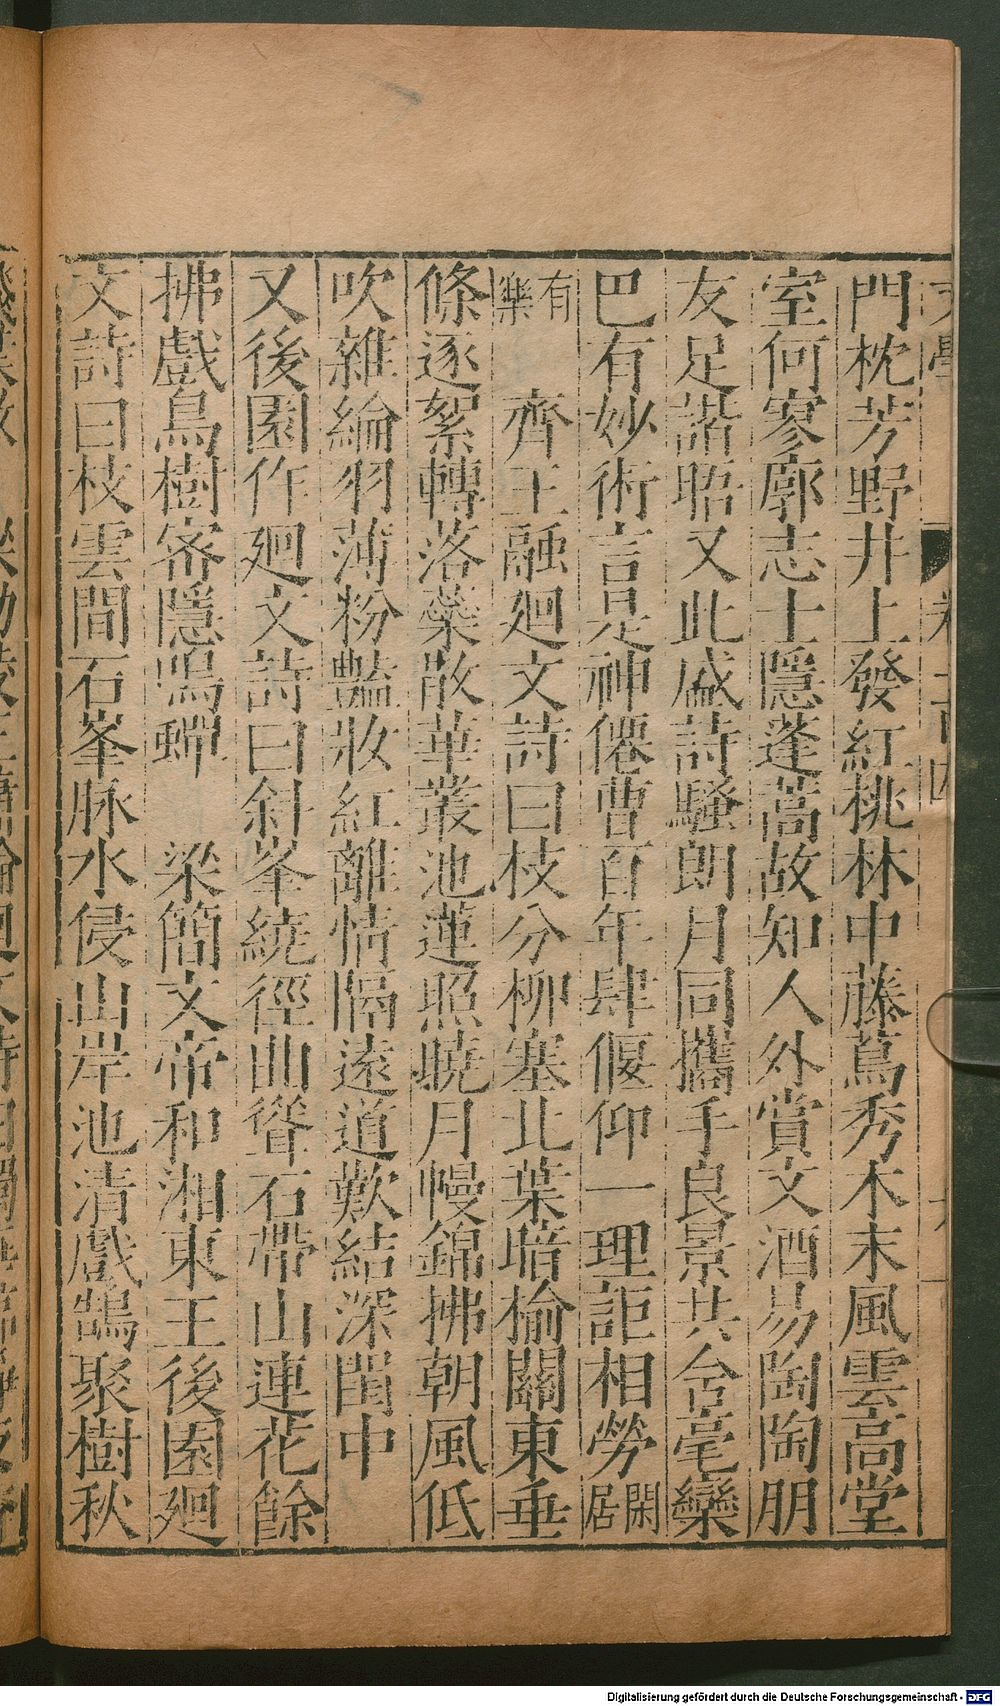 門枕芳野井上發紅桃林中藤蔦秀木末風雲高堂
室何寥廓志士隱蓬蒿故知人外賞文酒易陶陶朋
友足諧昭又此盛詩騷朗月同攜手良景共含毫欒
巴有妙術言是神僊曹百年肆偃仰一理詎相勞閑居
有樂 齊王融廻文詩曰枝分柳塞北葉暗榆關東垂
條逐絮轉落蘂散華叢池蓮照曉月幔錦拂朝風低
吹雜綸羽薄粉豔妝紅離情隔遠道歎結深閨中
又後園作廻文詩曰斜峯繞徑曲聳石帶山連花餘
拂戲鳥樹密隱鳴蟬 梁簡文帝和湘東王後園廻
文詩曰枝雲間石峯脉水侵山岸池清戲鵠聚樹秋
Digitalisierung gefördert durch die Deutsche Forschungsgemeinschaft - DFG